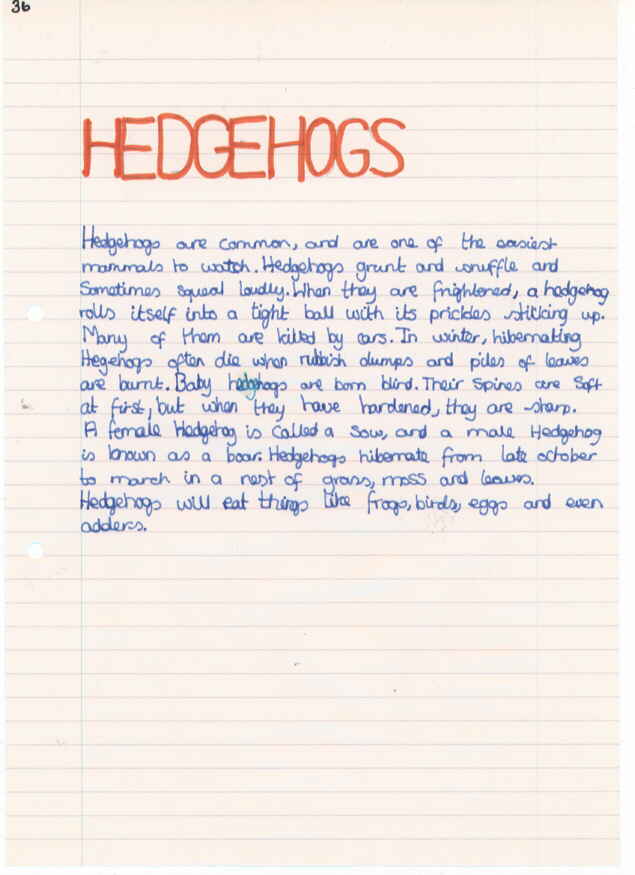 36
HEDGEHOGS
Hedgehogs are common, and are one of the easiest
mammals to watch. Hedgehogs grunt and snuffle and
Sometimes squeal loudly. When they are frightened, a hedgehog
rolls itself into a tight ball with its prickles sticking up.
Many of them are killed by cars. In winter, hibernating
Hegehogs often die when rubbish dumps and piles of leaves
are burnt. Baby hedgehogs are born blind. Their Spines are Soft
at first, but when they have hardened, they are sharp.
A female Hedgehog is called a Sow, and a male Hedgehog
is known as a boar. Hedgehogs hibernate from late october
to march in a nest of grass, moss and leaves.
Hedgehogs will eat things like frogs, birds, eggs and even
adders.